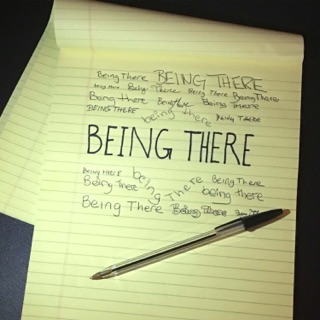 Being There BEING THERE
Being There Being There Being There Being There
Being there Being There Being There
BEING THERE being there Being There
BEING THERE
Being there being There Being There
Being There being there
Being There Being There Being There